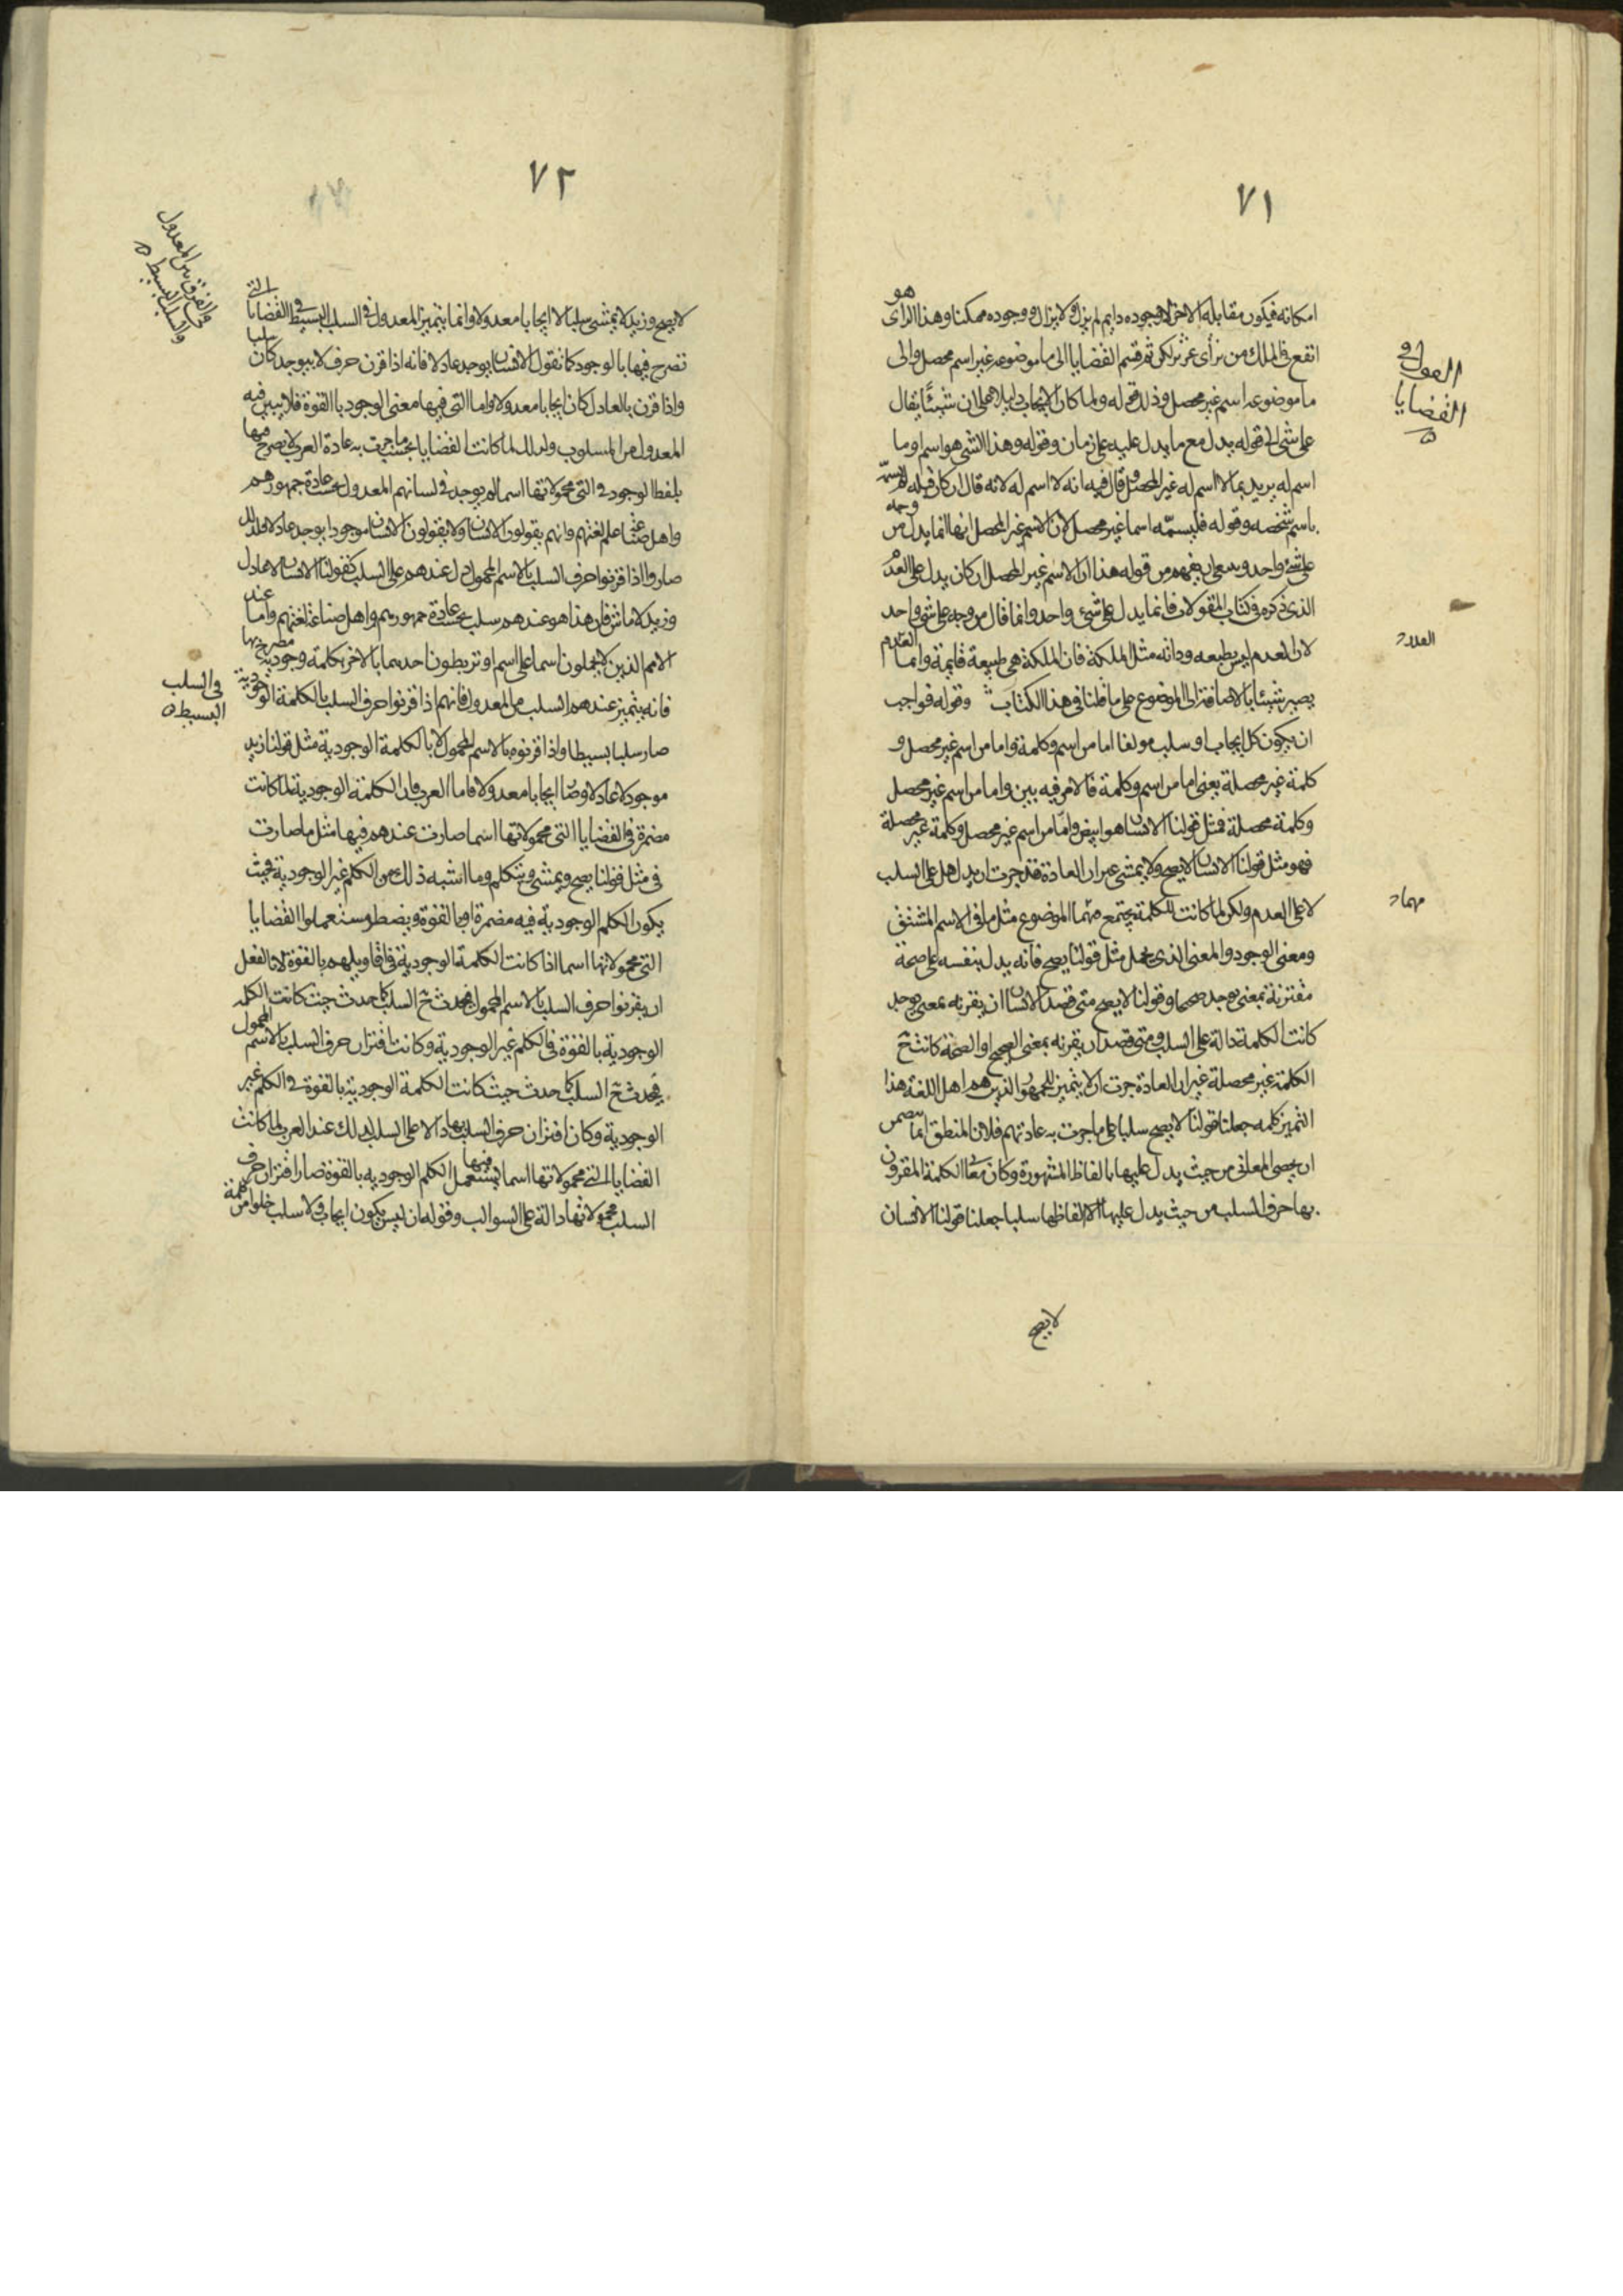 ٧١
القول في
القضايا
امكانه فيكون مقابله الاخر لا وجوده دايم لم يزل ولا يزال ووجوده ممكنا وهذا الراى هو
انفع في الملك من راى غيره لكن ثم قسم القضايا الى ما موضوعه غير اسم محصل والى
ما موضوعه اسم غير محصل وذلك قوله ولما كان الايجاب دليلا على ان شيئا يقال
على شى الى قوله يدل مع ما يدل عليه على زمان وقوله وهذا الشى هو اسم وما
اسم له يريد بما لا اسم له غير المحصل وقال فيه انه لا اسم له لانه قال ان كان قبله لم يسم
باسم شخصه وقوله فليسمّه اسما غير محصل لان الاسم غير المحصل انها انما يدل من وجه
على شى واحد وينبغى ان يفهم من قوله هذا ان الاسم غير المحصل ان كان يدل على العدم
الذى ذكره في كتاب المقولات فانما يدل على شى واحد وانما قال من وجه على شى واحد
العدد
لان العدم ليس طبيعه وذاته مثل الملكة فان الملكة هي طبيعة قايمة وانما العدم
يصير شيئا بالاضافة الى الموضوع على ما قلنا فى هذا الكتاب وقوله فواجب
ان يكون كل ايجاب او سلب مولفا اما من اسم وكلمة واما من اسم غير محصل و
كلمة غير محصلة يعنى اما من اسم وكلمة فالامر فيه بين واما من اسم غير محصل
وكلمة محصلة فمثل قولنا الانسان هو ابيض واما من اسم غير محصل وكلمة غير محصلة
فهو مثل قولنا الانسان لا يصح ولا يمشى غير ان العادة قد جرت ان يدل اهل على السلب
لا على العدم ولكن لما كانت الكلمة يجتمع منها الموضوع مثل ما في الاسم المشتق
ومعنى الوجود والمعنى الذى يحمل مثل قولنا يصح فانه يدل بنفسه على صحة
مقترنة بمعنى يوجد صحيحا وقولنا لا يصح متى قصد الانسان ان يقرنه بمعنى يوجد
كانت الكلمة دالة على السلب ومتى قصد ان يقرنه بمعنى الصحيح او الصحة كانت ح
الكلمة غير محصلة غير ان العادة جرت ان لا يتميز للجمهور الذين هم اهل اللغة هذا
التميز كله جعلنا قولنا لا يصح سلبا على ما جرت به عادتهم فلان المنطق انما
ان يحصى المعانى من حيث يدل عليها بالفاظ المشهورة وكان معنا الكلمة المقرون
بها حرف السلب من حيث يدل عليها الالفاظها سلبا جعلنا قولنا الانسان
لا يصح
٧٢
في الفرق بين المعدول
والسلب البسيط
لا يصح وزيد لا يمشى سلبا لا ايجابا معدولا وانما يتميز المعدول في السلب البسيط في القضايا التى
تصرح فيها بالوجود كما نقول الانسان يوجد عادلا فانه اذا قرن حرف لا بيوجد كان سلبا
واذا قرن بالعادل كان ايجابا معدولا واما التى فيها معنى الوجود بالقوة فلا يبين فيه
المعدول من المسلوب ولذلك لما كانت القضايا بحسب ما جرت به عادة العرب لا يصرح فيها
بلفظ الوجود في التى محمولاتها اسما لم يوجد في لسانهم المعدول بحسب عادة جمهورهم
واهل صناعة علم لغتهم وانهم يقولون الانسان ولا يقولون الانسان موجودا يوجد عادلا فلذلك
صاروا اذا قرنوا حرف السلب بالاسم المحمول دل عندهم على السلب كقولنا الانسان لا عادل
وزيد لا ماش فان هذا هو عندهم سلب بحسب عادة جمهورهم واهل صناعة لغتهم واما عند
الامم الذين لا يحملون اسما على اسم او تربطون احدهما بالاخر بكلمة وجودية مصرح بها
في السلب
البسيط
فانه يتميز عندهم السلب من المعدول فانهم اذا قرنوا حرف السلب بالكلمة الوجودية
صار سلبا بسيطا واذا قرنوه بالاسم المحمول لا بالكلمة الوجودية مثل قولنا زيد
موجود لا عادلا وصا ايجابا معدولا فاما العرب فان الكلمة الوجودية لما كانت
مضمرة في القضايا التى محمولاتها اسما صارت عندهم فيها مثل ما صارت
فى مثل قولنا يصح ويمشى ويتكلم وما اشبه ذلك من الكلم غير الوجودية حيث
يكون الكلم الوجودية فيه مضمرة او بالقوة وبضطر مستعملوا القضايا
التى محمولاتها اسما اذا كانت الكلمة الوجودية في اقاويلهم بالقوة لا بالفعل
ان يقرنوا حرف السلب بالاسم المحمول فيحدث ح السلب كما حدث حيث كانت الكلمة
الوجودية بالقوة في الكلم غير الوجودية وكانت اقتران حرف السلب بالاسم المحمول
يحدث ح السلب كما حدث حيث كانت الكلمة الوجودية بالقوة في الكلم غير
الوجودية وكان اقتران حرف السلب بها دالا على السلب لذلك عند العرب لما كانت
القضايا التى محمولاتها اسما يستعمل فيها الكلم الوجودية بالقوة صار اقتران حرف
السلب بمحمولاتها دالة على السوالب وقوله ان ليس يكون ايجاب ولا سلب خلوا من كلمة